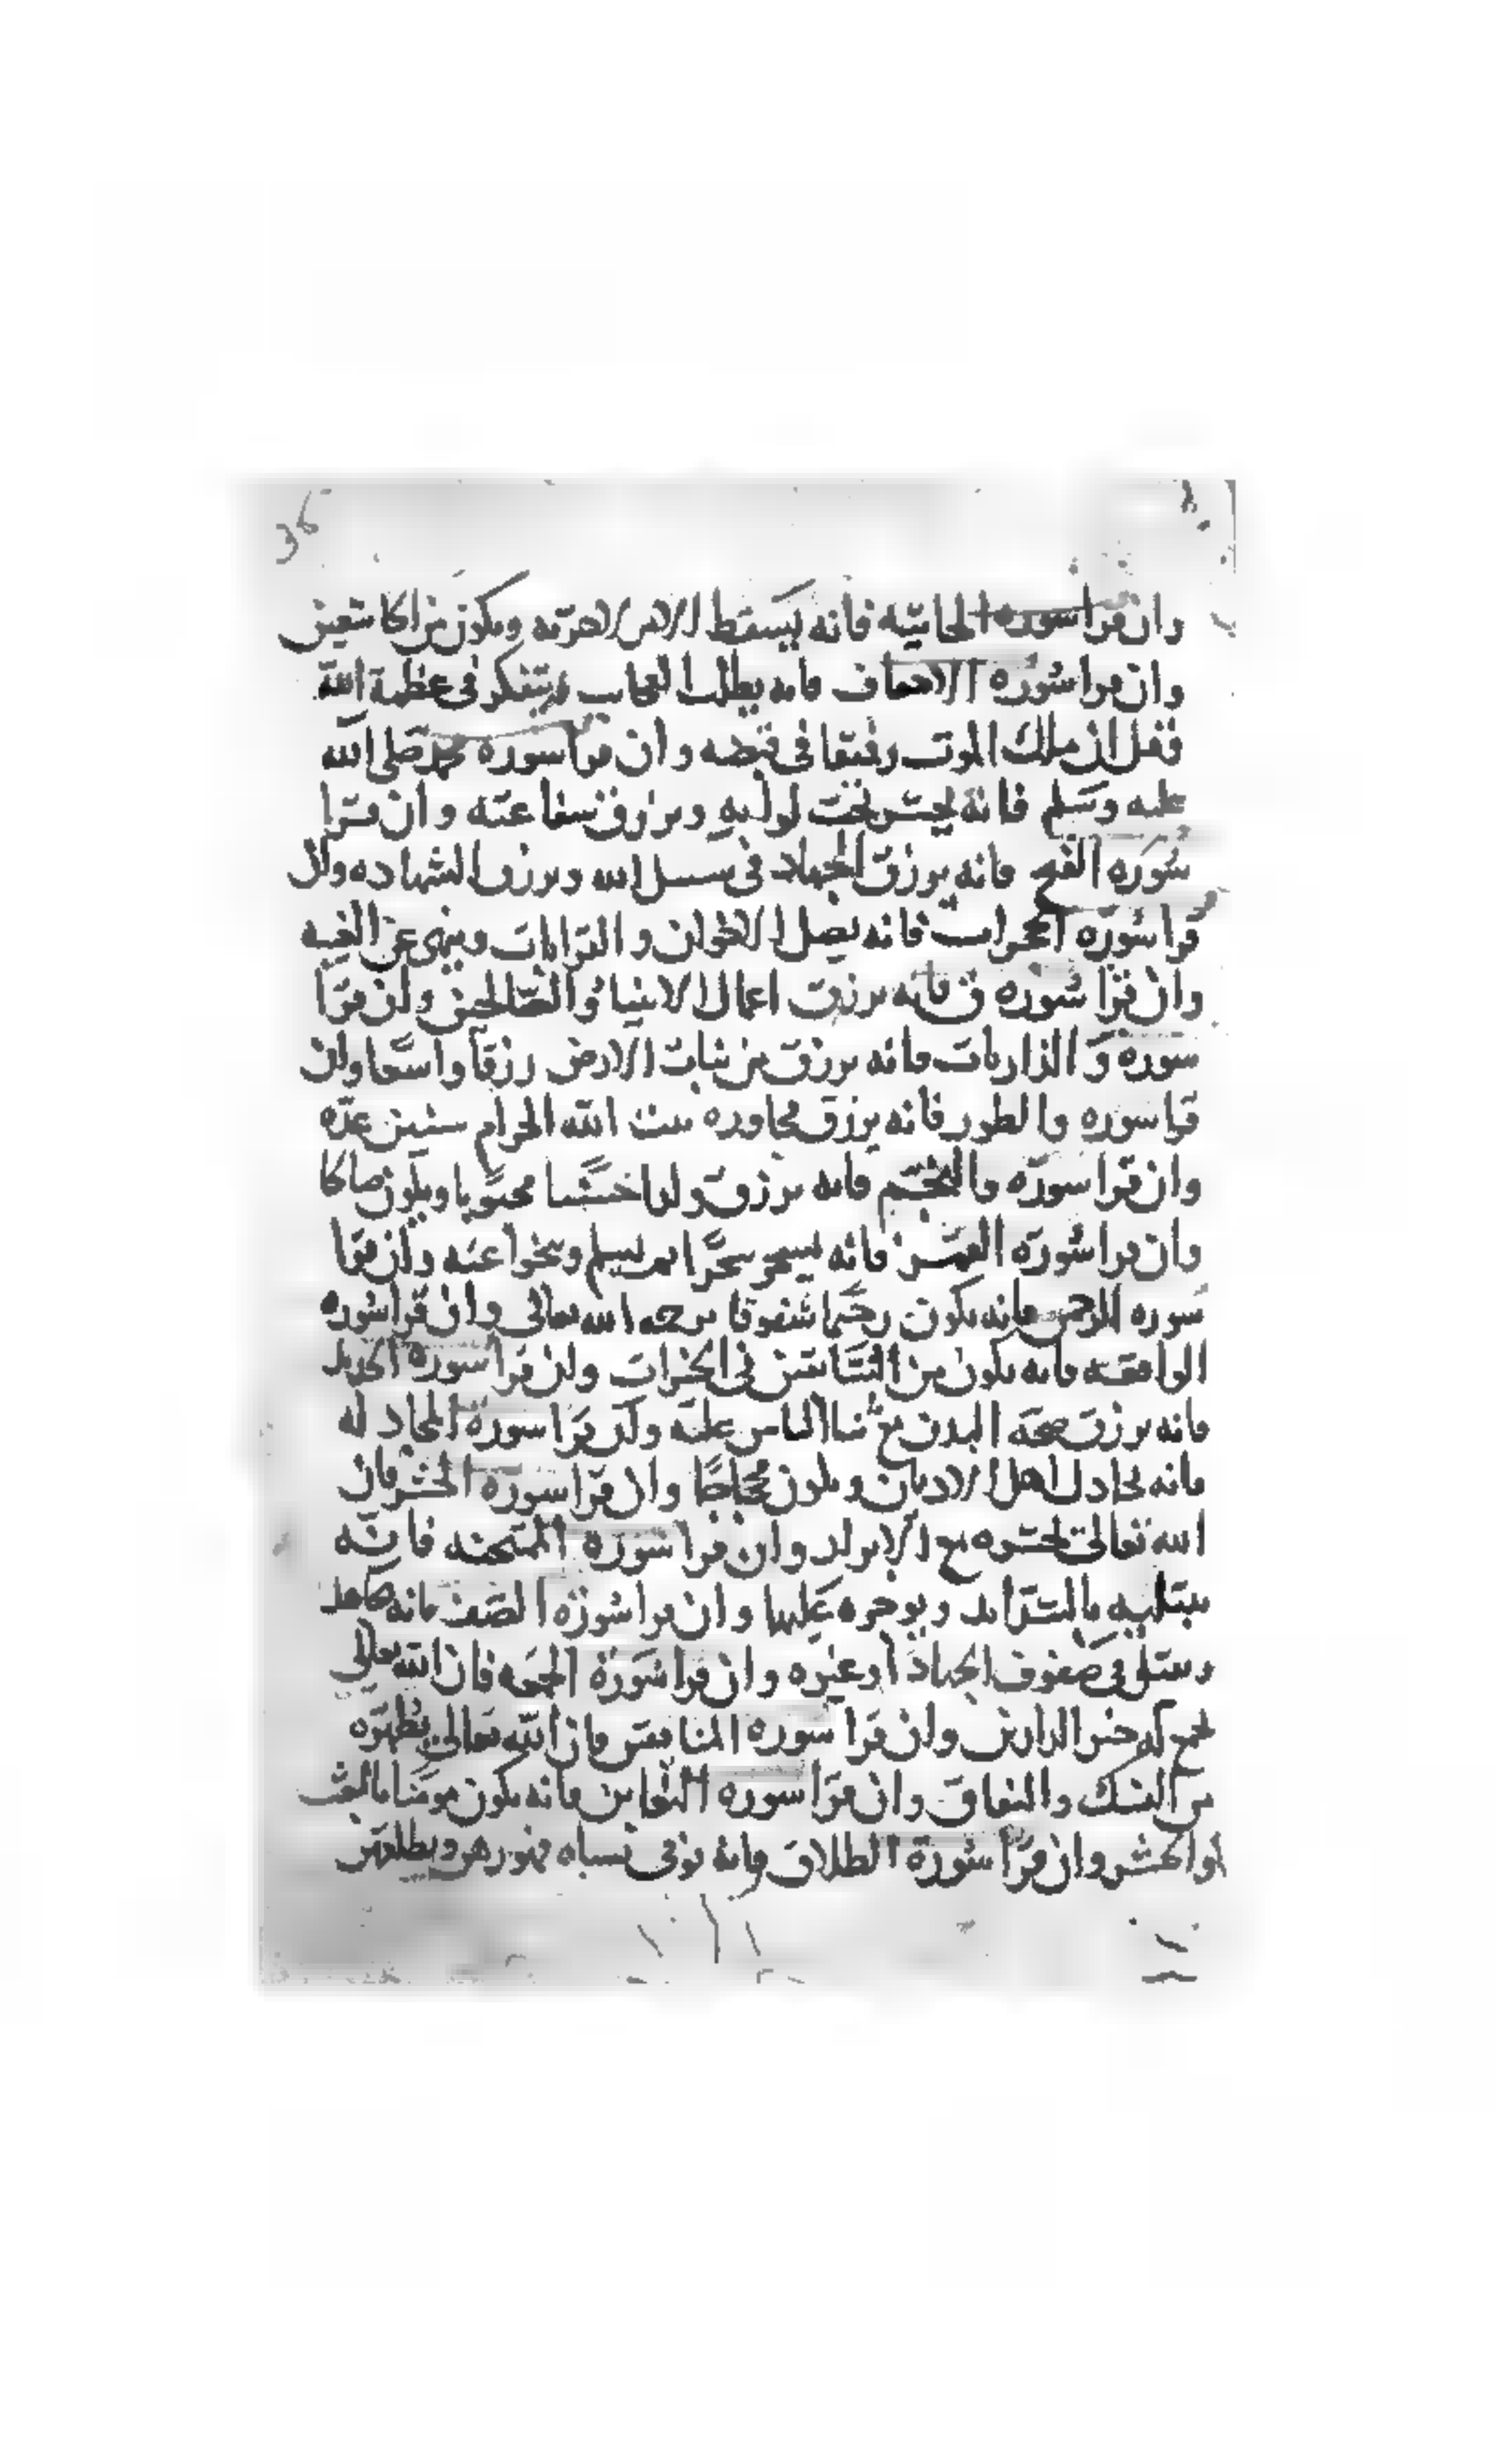 36
وان قرا سورة الجاثيه فانه يسقط الا من الاخرته ويكون من الخاشعين
وان قرا سورة الاحقاف فانه يطلب العجايب ويتفكر في عظمة الله
قفل ان ملك الموت رفيقا في قبضه وان قرا سورة محمد صلى الله
عليه وسلم فانه يحشر تحت لوايه ويرزق شفاعته وان قرا
سوره الفتح فانه يرزق الجهاد في سبيل الله ويرزق الشهاده وان
قرا سورة الحجرات فانه يصل الاخوان و القرابات وينهى عن الغيبه
وان قرا سورة ق فانه يرزق اعمال الانبيا والصالحين وان قرا
سورة و الذاريات فانه يرزق من نبات الارض رزقا واسعا وان
قرا سوره والطور فانه يرزق مجاوره بيت الله الحرام سنين عده
وان قرا سورة والنجم فانه يرزق ولدا محبوبا ويكون
وان قرا سورة القمر فانه يسحر سحرا ثم يسلم وينجوا عنه وان قرا
سورة الرحمن فانه يكون رحيما شفوقا يرحمه الله تعالى وان قرا سورة
الواقعه فانه يكون من السابقين في الخيرات وان قرا سورة الحديد
فانه يرزق صحة البدن مع ثنا الناس عليه وان قرا سورة المجادله
فانه يجادل اهل الاديان ويكون محجاجا وان قرا سورة الحشر فان
الله تعالى يحشره مع الابرار وان قرا سورة الممتحنه فانه
يبتليه بالشدايد ويوجره عليها وان قرا سورة الصف فانه
في صفوف الجهاد او غيره وان قرا سورة الجمعه فان الله تعالى
يجمع له خير الدارين وان قرا سوره المنافقين فان الله تعالى يطهره
من الشك والنفاق وان قرا سوره التغابن فانه يكون مومنا بالبعث
والحشر وان قرا سورة الطلاق فانه يوفي نساه مهورهن ويطلقهن